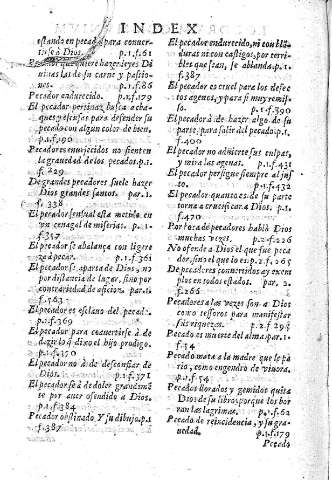 INDEX
estando en pecado para conuer-
tirse à Dios. p.1.f.61
Pecador que quiere hazer leyes Di
uinas las de su carne y passio-
nes. p.1.f.86
Pecador endurecido. p.1.f.179
El pecador pertinaz busca acha-
ques y escusas para defender su
pecado con algun color de bien.
p.1.f.190
Pecadores enuejecidos no sienten
la grauedad de los pecados. p.1.
f. 229
De grandes pecadores suele hazer
Dios grandes santos. par.1.
f. 338
El pecador sensual està metido en
vn cenagal de miserias. p.1.
f.357
El pecador se abalança con ligere
za à pecar. p.1.f.361
El pecador se aparta de Dios, no
por distancia de lugar, sino por
contrariedad de aficion. par.1.
f.363
El pecador es esclauo del pecado.
p.1.f.369
El pecador para conuertirse à de
dezir lo q̃ dixo el hijo prodigo.
p.1.f.370
El pecador no à de desconfiar de
Dios. p.1.f.371
El pecador se à de doler grandemẽ
te por auer ofendido a Dios.
p.1.f.384
Pecador obstinado, Y su dibujo. p.1
f.387
El pecador endurecido, ni con blã
duras ni con castigos, por terri
bles que sean, se ablanda. p.1.
f.387
El pecador es cruel para los defec
tos agenos, y para si muy remis-
so. p.1.f.
El pecador à de hazer algo de su
parte, para salir del pecado. p.1.
f.400
El pecador no aduierte sus culpas,
y mira las agenas. p.1.f.431
El pecador persigue siempre al jus
to. p.1.f.432
El pecador quanto es de su parte
torna a crucificar à Dios. p.1.
f.470
Por boca de pecadores hablà Dios
muchas vezes. p.2.f.226
No ofende a Dios el que fue peca
dor, sino el que lo es. p.2.f.265
De pecadores conuertidos ay exem
plos en todos estados. par. 2.
f.266
Pecadores a las vezes son a Dios
como tesoros para manifestar
sus riquezas. p.2.f.295
Pecado es muerte del alma. par.1.
f.34
Pecado mata a la madre que le pa
rio, como engendro de viuora.
p.1.f.54
Pecados llorados y gemidos quita
Dios de su libro, porque los bor
ran las lagrimas. p.1.f.62
Pecado de reincidencia, y su gra-
uedad. p.1.f.179
Pecado